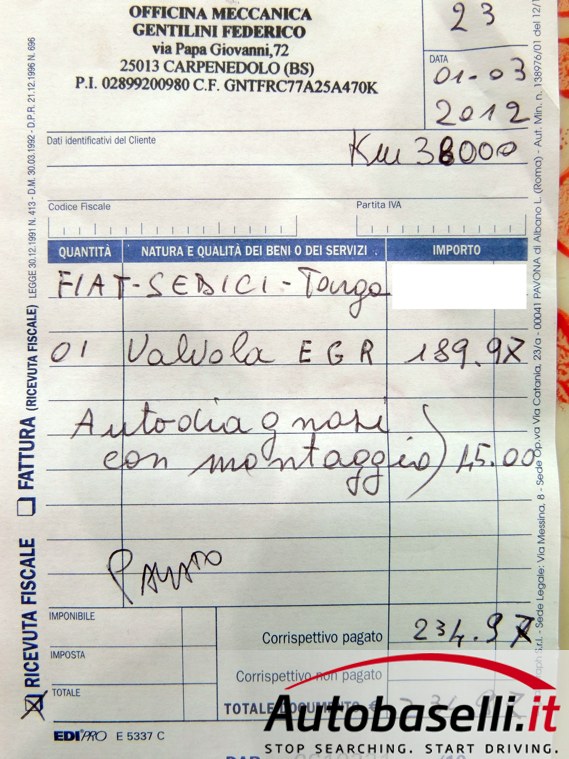 OFFICINA MECCANICA
GENTILINI FEDERICO
via Papa Giovanni,72
25013 CARPENEDOLO (BS)
P.I. 02899200980 C.F. GNTFRC77A25A470K
23
DATA
01-03
2012
Dati identificativi del Cliente
Km 38000
Codice Fiscale
Partita IVA
QUANTITÀ NATURA E QUALITÀ DEI BENI O DEI SERVIZI IMPORTO
FIAT-SEDICI-Targa
01 Valvola EGR 189.97
Autodiagnosi
con montaggio) 45.00
PAGATO
IMPONIBILE
Corrispettivo pagato 234.97
IMPOSTA
Corrispettivo non pagato
TOTALE
TOTALE DOCUMENTO € 234.97
EDIPRO E 5337 C
RICEVUTA FISCALE FATTURA (RICEVUTA FISCALE) LEGGE 30.12.1991 N. 413 - D.M. 30.03.1992 - D.P.R. 21.12.1996 N. 696
S.r.l. - Sede Legale: Via Messina, 8 - Sede Op.va Via Catania, 23/a - 00041 PAVONA di Albano L. (Roma) - Aut. Min. n. 138976/01 del 12/1
Autobaselli.it
STOP SEARCHING. START DRIVING.